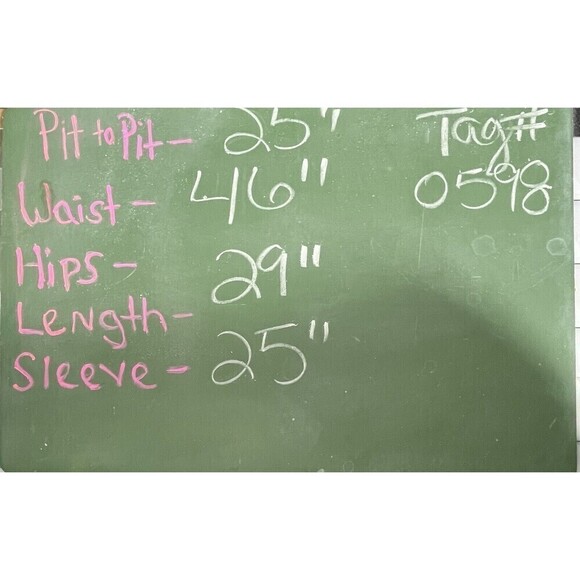 Pit to Pit - 25" Tag#
Waist - 46" 0598
Hips -
29"
Length -
Sleeve - 25"